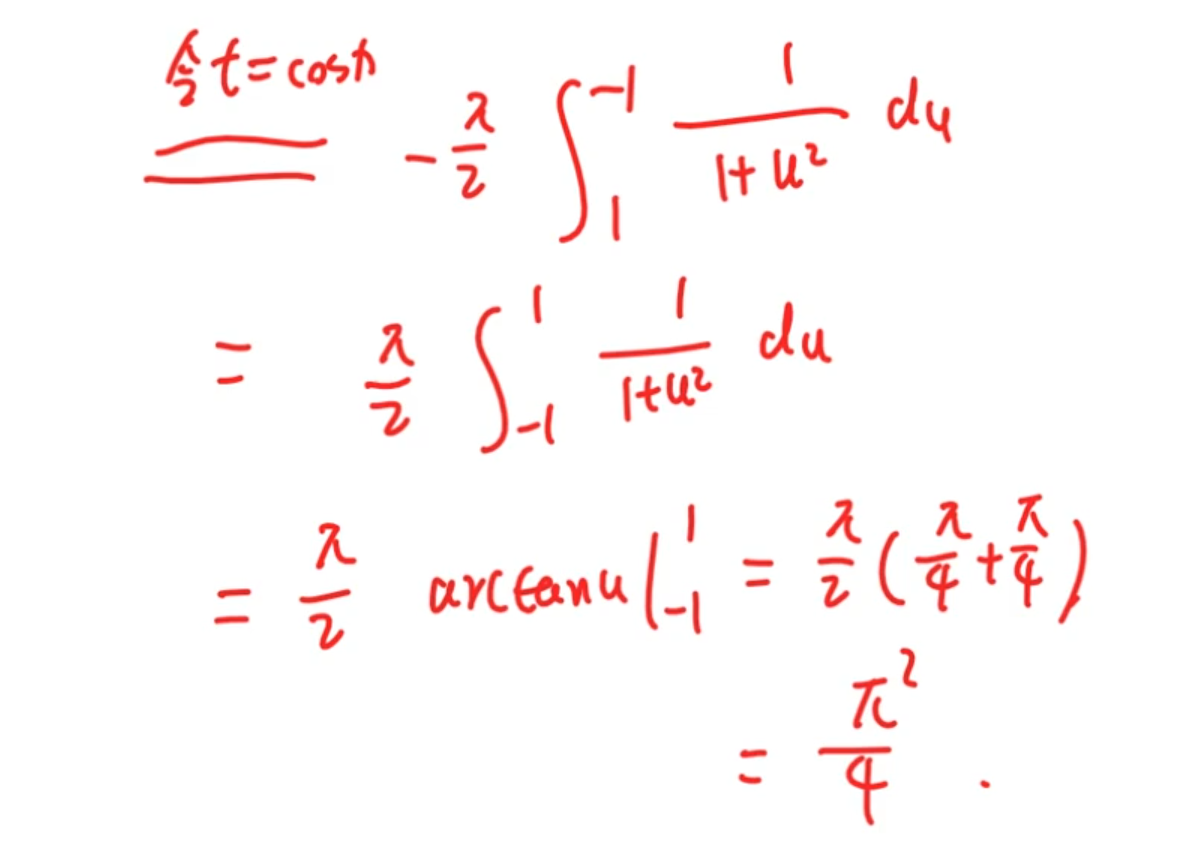 令 t = cosx
-π/2 ∫_1^{-1} 1/(1+u²) du
= π/2 ∫_{-1}^{1} 1/(1+u²) du
= π/2 arctanu |_{-1}^{1} = π/2 (π/4 + π/4)
= π²/4 .